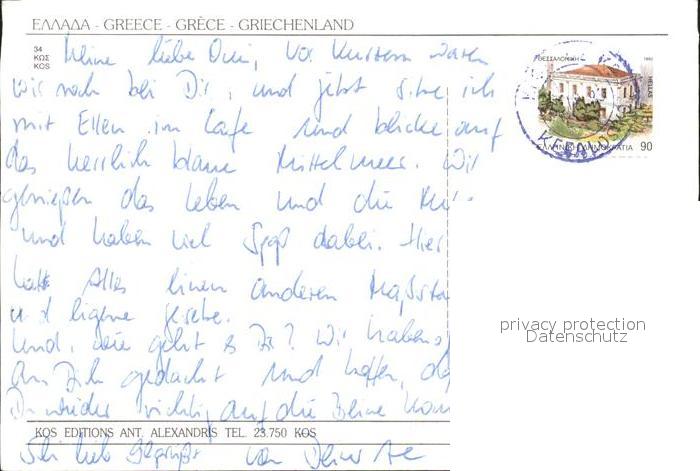 ΕΛΛΑΔΑ - GREECE - GRÈCE - GRIECHENLAND
34
ΚΩΣ
KOS
Meine liebe Omi, Vor Kurzem waren
wir noch bei Dir, und jetzt sitze ich
mit Ellen im Cafe und blicke auf
das herrlich blaue Mittelmeer. Wir
genießen das Leben und die
und haben viel Spaß dabei. Hier
hat Alles einen anderen Maßsta
und eigene Gesetze.
Und, wie geht es Dir? Wir haben
An Dich gedacht und hoffen, da
Du wieder richtig auf die Beine kom
KOS EDITIONS ANT. ALEXANDRIS TEL. 23.750 KOS
Sei lieb gegrüßt von Deiner
ΘΕΣΣΑΛΟΝΙΚΗ
HELLAS
ΕΛΛΗΝΙΚΗ ΔΗΜΟΚΡΑΤΙΑ 90
privacy protection
Datenschutz